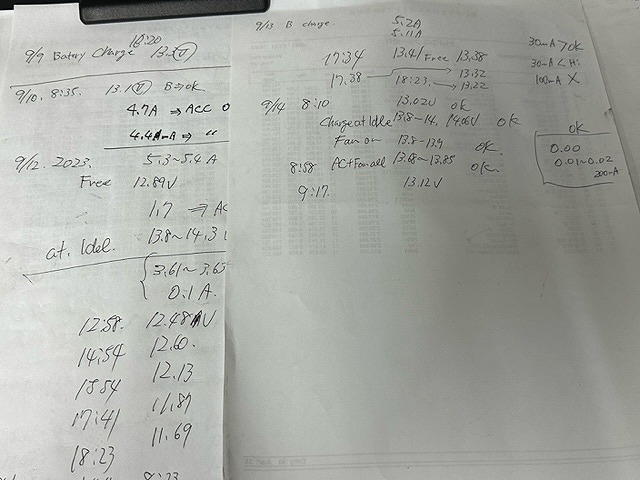 9/9 Battery Charge 16:20 13.2 V
9/10. 8:35. 13.1 V B⇒ok
4.7A ⇒ ACC O
4.4A ⇒ "
9/12. 2023. 5.3~5.4 A
Free 12.89V
1.7 ⇒ AC
at. Idel. 13.8~14.3
3.61~3.63
0.1 A.
12:58. 12.48 V
14:54 12.60.
15:54 12.13
17:41 11.89
18:23 11.69
9/13 B charge. 5.2A
5.11A
17:34 13.41 Free 13.38
17:38 13.32
18:23. 13.22
30mA > ok
30mA < Hi
100mA X
9/14 8:10 13.02V ok
Charge at Idle 13.8~14. 14.06V ok
Fan on 13.8~13.9 ok.
8:58 AC+Fan all 13.68~13.85 ok.
9:17. 13.12V
ok
0.00
0.01~0.02
200mA